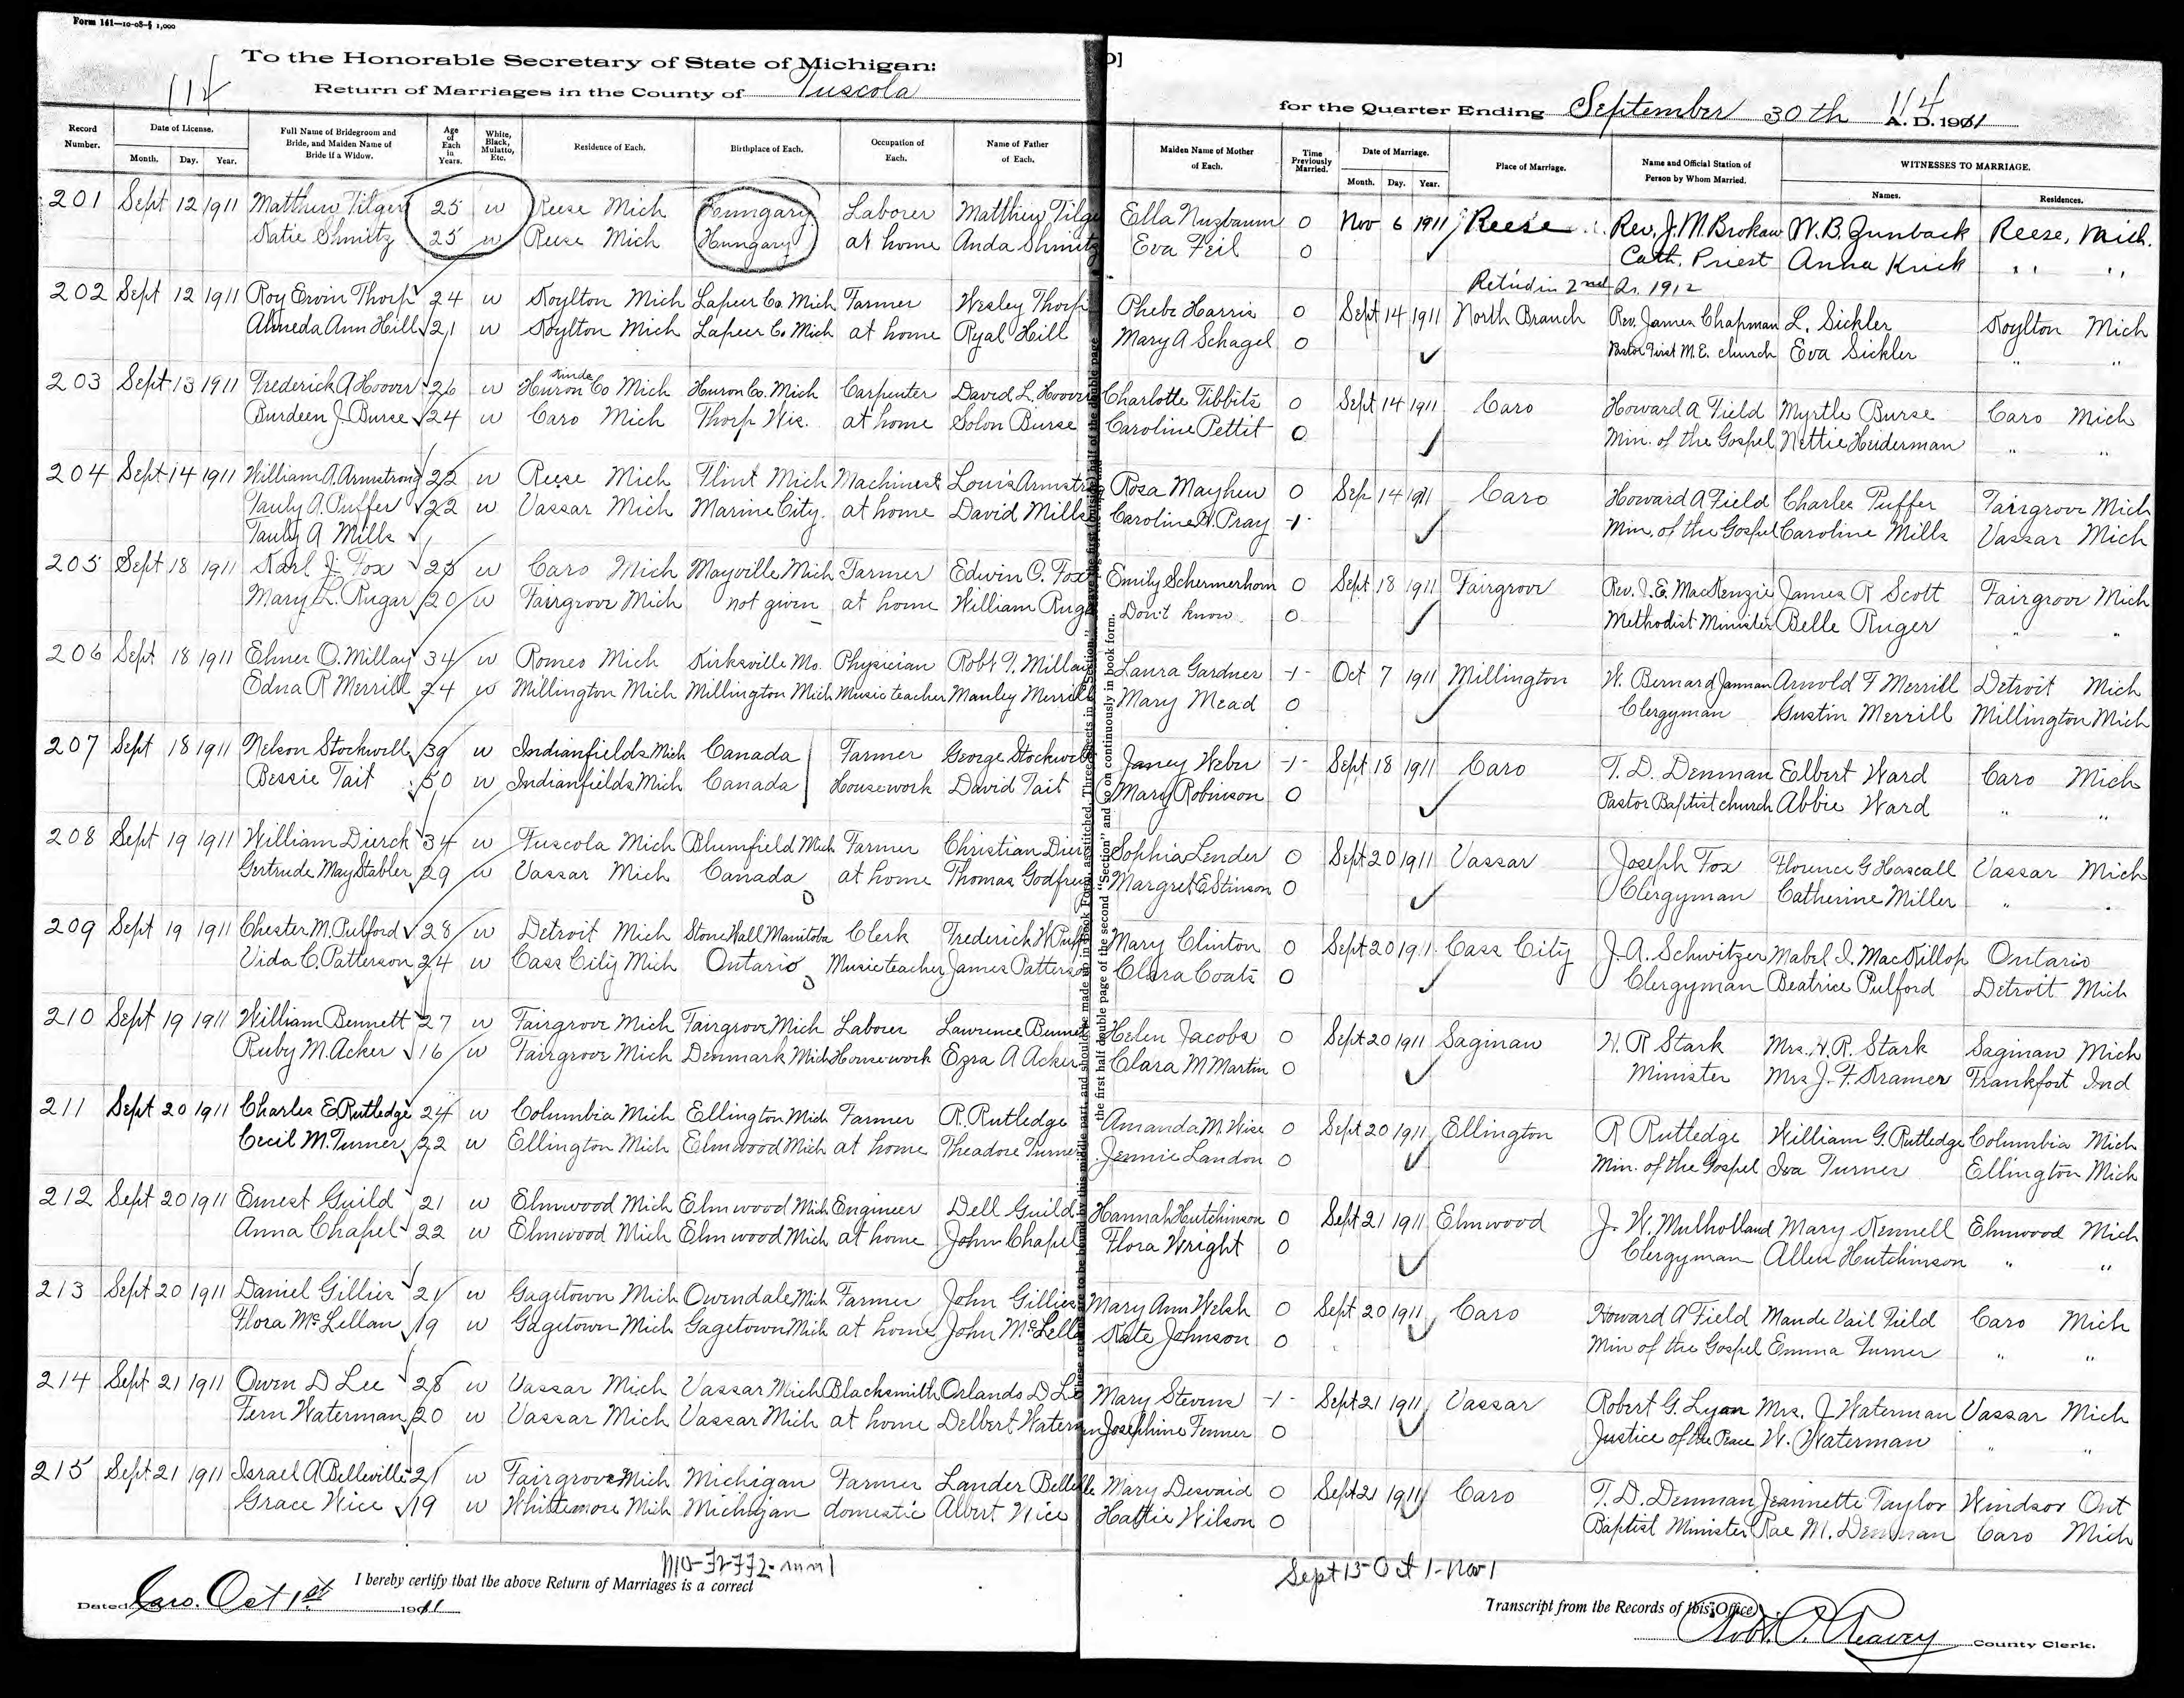 Form 161—10-08-§ 1,000
To the Honorable Secretary of State of Michigan:
Return of Marriages in the County of Tuscola
for the Quarter Ending September 30th A. D. 1911
114
Record Number. Date of License. Month. Day. Year. Full Name of Bridegroom and Bride, and Maiden Name of Bride if a Widow. Age of Each in Years. White, Black, Mulatto, Etc. Residence of Each. Birthplace of Each. Occupation of Each. Name of Father of Each. Maiden Name of Mother of Each. Time Previously Married. Date of Marriage. Month. Day. Year. Place of Marriage. Name and Official Station of Person by Whom Married. WITNESSES TO MARRIAGE. Names. Residences.
201 Sept 12 1911 Matthew Tilger 25 w Reese Mich Hungary Laborer Matthew Tilge Ella Nuzbaum 0 Nov 6 1911 Reese Rev. J. M. Brokaw W. B. Gunback Reese, Mich.
Katie Shmitz 25 w Reese Mich Hungary at home Anda Shmitz Eva Feil 0 Cath. Priest Anna Krick " "
Ret'd in 2nd Qr. 1912
202 Sept 12 1911 Roy Ervin Thorp 24 w Koylton Mich Lapeer Co. Mich Farmer Wesley Thorp Phebe Harris 0 Sept 14 1911 North Branch Rev. James Chapman L. Sickler Koylton Mich
Almeda Ann Hill 21 w Koylton Mich Lapeer Co. Mich at home Ryal Hill Mary A Schagel 0 Pastor First M.E. church Eva Sickler " "
203 Sept 13 1911 Frederick A Hoover 26 w Kinde Huron Co Mich Huron Co. Mich Carpenter David L. Hoover Charlotte Tibbits 0 Sept 14 1911 Caro Howard A Field Myrtle Burse Caro Mich
Burdeen J. Burse 24 w Caro Mich Thorp Wis. at home Solon Burse Caroline Pettit 0 Min. of the Gospel Nettie Huderman " "
204 Sept 14 1911 William A. Armstrong 22 w Reese Mich Flint Mich Machinest Louis Armstr Rosa Mayhew 0 Sep 14 1911 Caro Howard A Field Charles Puffer Fairgrove Mich
Pauly A. Puffer 22 w Vassar Mich Marine City. at home David Mills Caroline H. Pray -1- Min. of the Gospel Caroline Mills Vassar Mich
Pauly A Mills
205 Sept 18 1911 Karl J. Fox 25 w Caro Mich Mayville Mich Farmer Edwin C. Fox Emily Schermerhorn 0 Sept 18 1911 Fairgrove Rev. J. E. MacKenzie James R Scott Fairgrove Mich
Mary L. Rugar 20 w Fairgrove Mich not given at home William Ruga Don't know 0 Methodist Minister Belle Ruger " "
206 Sept 18 1911 Elmer O. Millay 34 w Romeo Mich Kirksville Mo. Physician Robt T. Millay Laura Gardner -1- Oct 7 1911 Millington W. Bernard Janman Arnold F Merrill Detroit Mich
Edna R Merrill 24 w Millington Mich Millington Mich Music teacher Manley Merrill Mary Mead 0 Clergyman Gustin Merrill Millington Mich
207 Sept 18 1911 Nelson Stockwell 39 w Indianfields Mich Canada Farmer George Stockwell Janey Weber -1- Sept 18 1911 Caro T. D. Denman Elbert Ward Caro Mich
Bessie Tait 50 w Indianfields Mich Canada Housework David Tait Mary Robinson 0 Pastor Baptist church Abbie Ward " "
208 Sept 19 1911 William Dierck 34 w Tuscola Mich Blumfield Mich Farmer Christian Dier Sophia Lender 0 Sept 20 1911 Vassar Joseph Fox Florence G Hascall Vassar Mich
Gertrude May Stabler 29 w Vassar Mich Canada at home Thomas Godfrey Margret E Stinson 0 Clergyman Catherine Miller " "
209 Sept 19 1911 Chester M. Pulford 28 w Detroit Mich Stone Wall Manitoba Clerk Frederick W Pulf Mary Clinton 0 Sept 20 1911 Cass City J. A. Schwitzer Mabel I. MacKillop Ontario
Vida C. Patterson 24 w Cass City Mich Ontario Music teacher James Patterson Clara Coats 0 Clergyman Beatrice Pulford Detroit Mich
210 Sept 19 1911 William Bennett 27 w Fairgrove Mich Fairgrove Mich Laborer Lawrence Bennet Helen Jacobs 0 Sept 20 1911 Saginaw H. R Stark Mrs. H. R. Stark Saginaw Mich
Ruby M. Acker 16 w Fairgrove Mich Denmark Mich House work Ezra A Acker Clara M Martin 0 Minister Mrs J. F. Kramer Frankfort Ind
211 Sept 20 1911 Charles E Rutledge 24 w Columbia Mich Ellington Mich Farmer R. Rutledge Amanda M. Wise 0 Sept 20 1911 Ellington R Rutledge William G. Rutledge Columbia Mich
Cecil M. Turner 22 w Ellington Mich Elmwood Mich at home Theadore Turner Jennie Landon 0 Min. of the Gospel Iva Turner Ellington Mich
212 Sept 20 1911 Ernest Guild 21 w Elmwood Mich Elmwood Mich Engineer Dell Guild Hannah Hutchinson 0 Sept 21 1911 Elmwood J. W. Mulholland Mary Kennell Elmwood Mich
Anna Chapel 22 w Elmwood Mich Elmwood Mich at home John Chapel Flora Wright 0 Clergyman Allen Hutchinson " "
213 Sept 20 1911 Daniel Gillies 21 w Gagetown Mich Owendale Mich Farmer John Gillies Mary Ann Welsh 0 Sept 20 1911 Caro Howard A Field Maude Vail Field Caro Mich
Flora McLellan 19 w Gagetown Mich Gagetown Mich at home John McLella Kate Johnson 0 Min of the Gospel Emma Turner " "
214 Sept 21 1911 Owen D Lee 28 w Vassar Mich Vassar Mich Blacksmith Orlando D Le Mary Stevens -1- Sept 21 1911 Vassar Robert G. Lyon Mrs. J Waterman Vassar Mich
Fern Waterman 20 w Vassar Mich Vassar Mich at home Delbert Waterman Josephine Fenner 0 Justice of the Peace W. Waterman " "
215 Sept 21 1911 Israel A Belleville 21 w Fairgrove Mich Michigan Farmer Lander Belleville Mary Deswaid 0 Sept 21 1911 Caro T. D. Denman Jeannette Taylor Windsor Ont
Grace Vice 19 w Whittemore Mich Michigan domestic Albert Vice Hattie Wilson 0 Baptist Minister Rae M. Denman Caro Mich
Sept 15-Oct 1-Nov 1
I hereby certify that the above Return of Marriages is a correct Transcript from the Records of this Office.
Dated Caro. Oct 1st 1911
Robt. P. Reavey County Clerk.